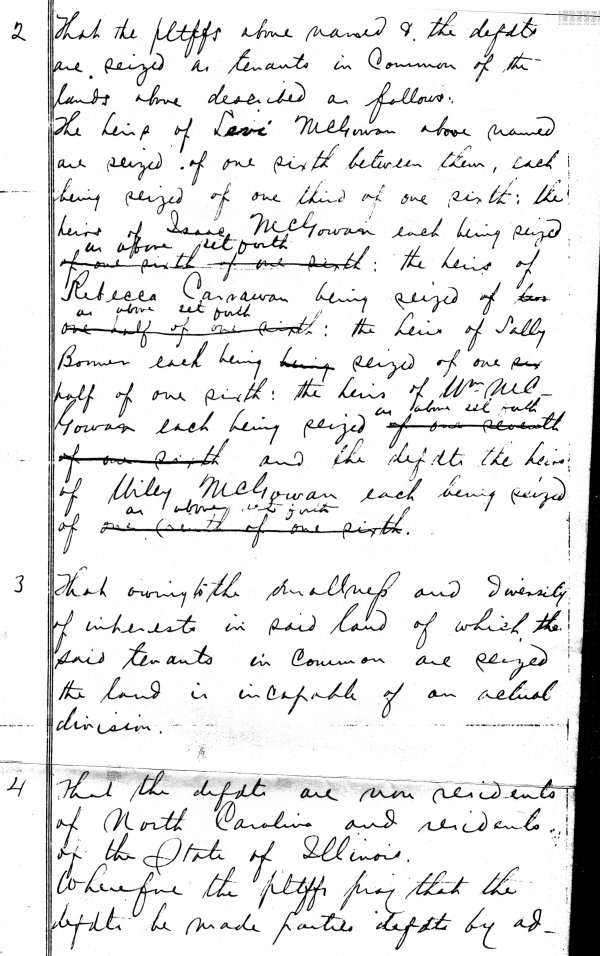 2 That the pltffs above named & the defdts
are seized as tenants in Common of the
lands above described as follows:
The heirs of Levi McGowan above named
are seized of one sixth between them, each
being seized of one third of one sixth: the
heirs of Isaac McGowan each being seized
as above set forth
of one sixth of one sixth: the heirs of
Rebecca Carrawan being seized of
as above set forth
one half of one sixth: the heirs of Sally
Bonner each being being seized of one six
half of one sixth: the heirs of Wm Mc-
Gowan each being seized of one seventh
as above set forth
of one sixth and the defdts the heirs
of Wiley McGowan each being seized
as above set forth
of one tenth of one sixth.
3 That owing to the smallness and diversity
of interests in said land of which the
said tenants in common are seized
the land is incapable of an actual
division.
4 That the defdts are non residents
of North Carolina and residents
of the State of Illinois.
Wherefore the pltffs pray that the
defdts be made parties defdts by ad-